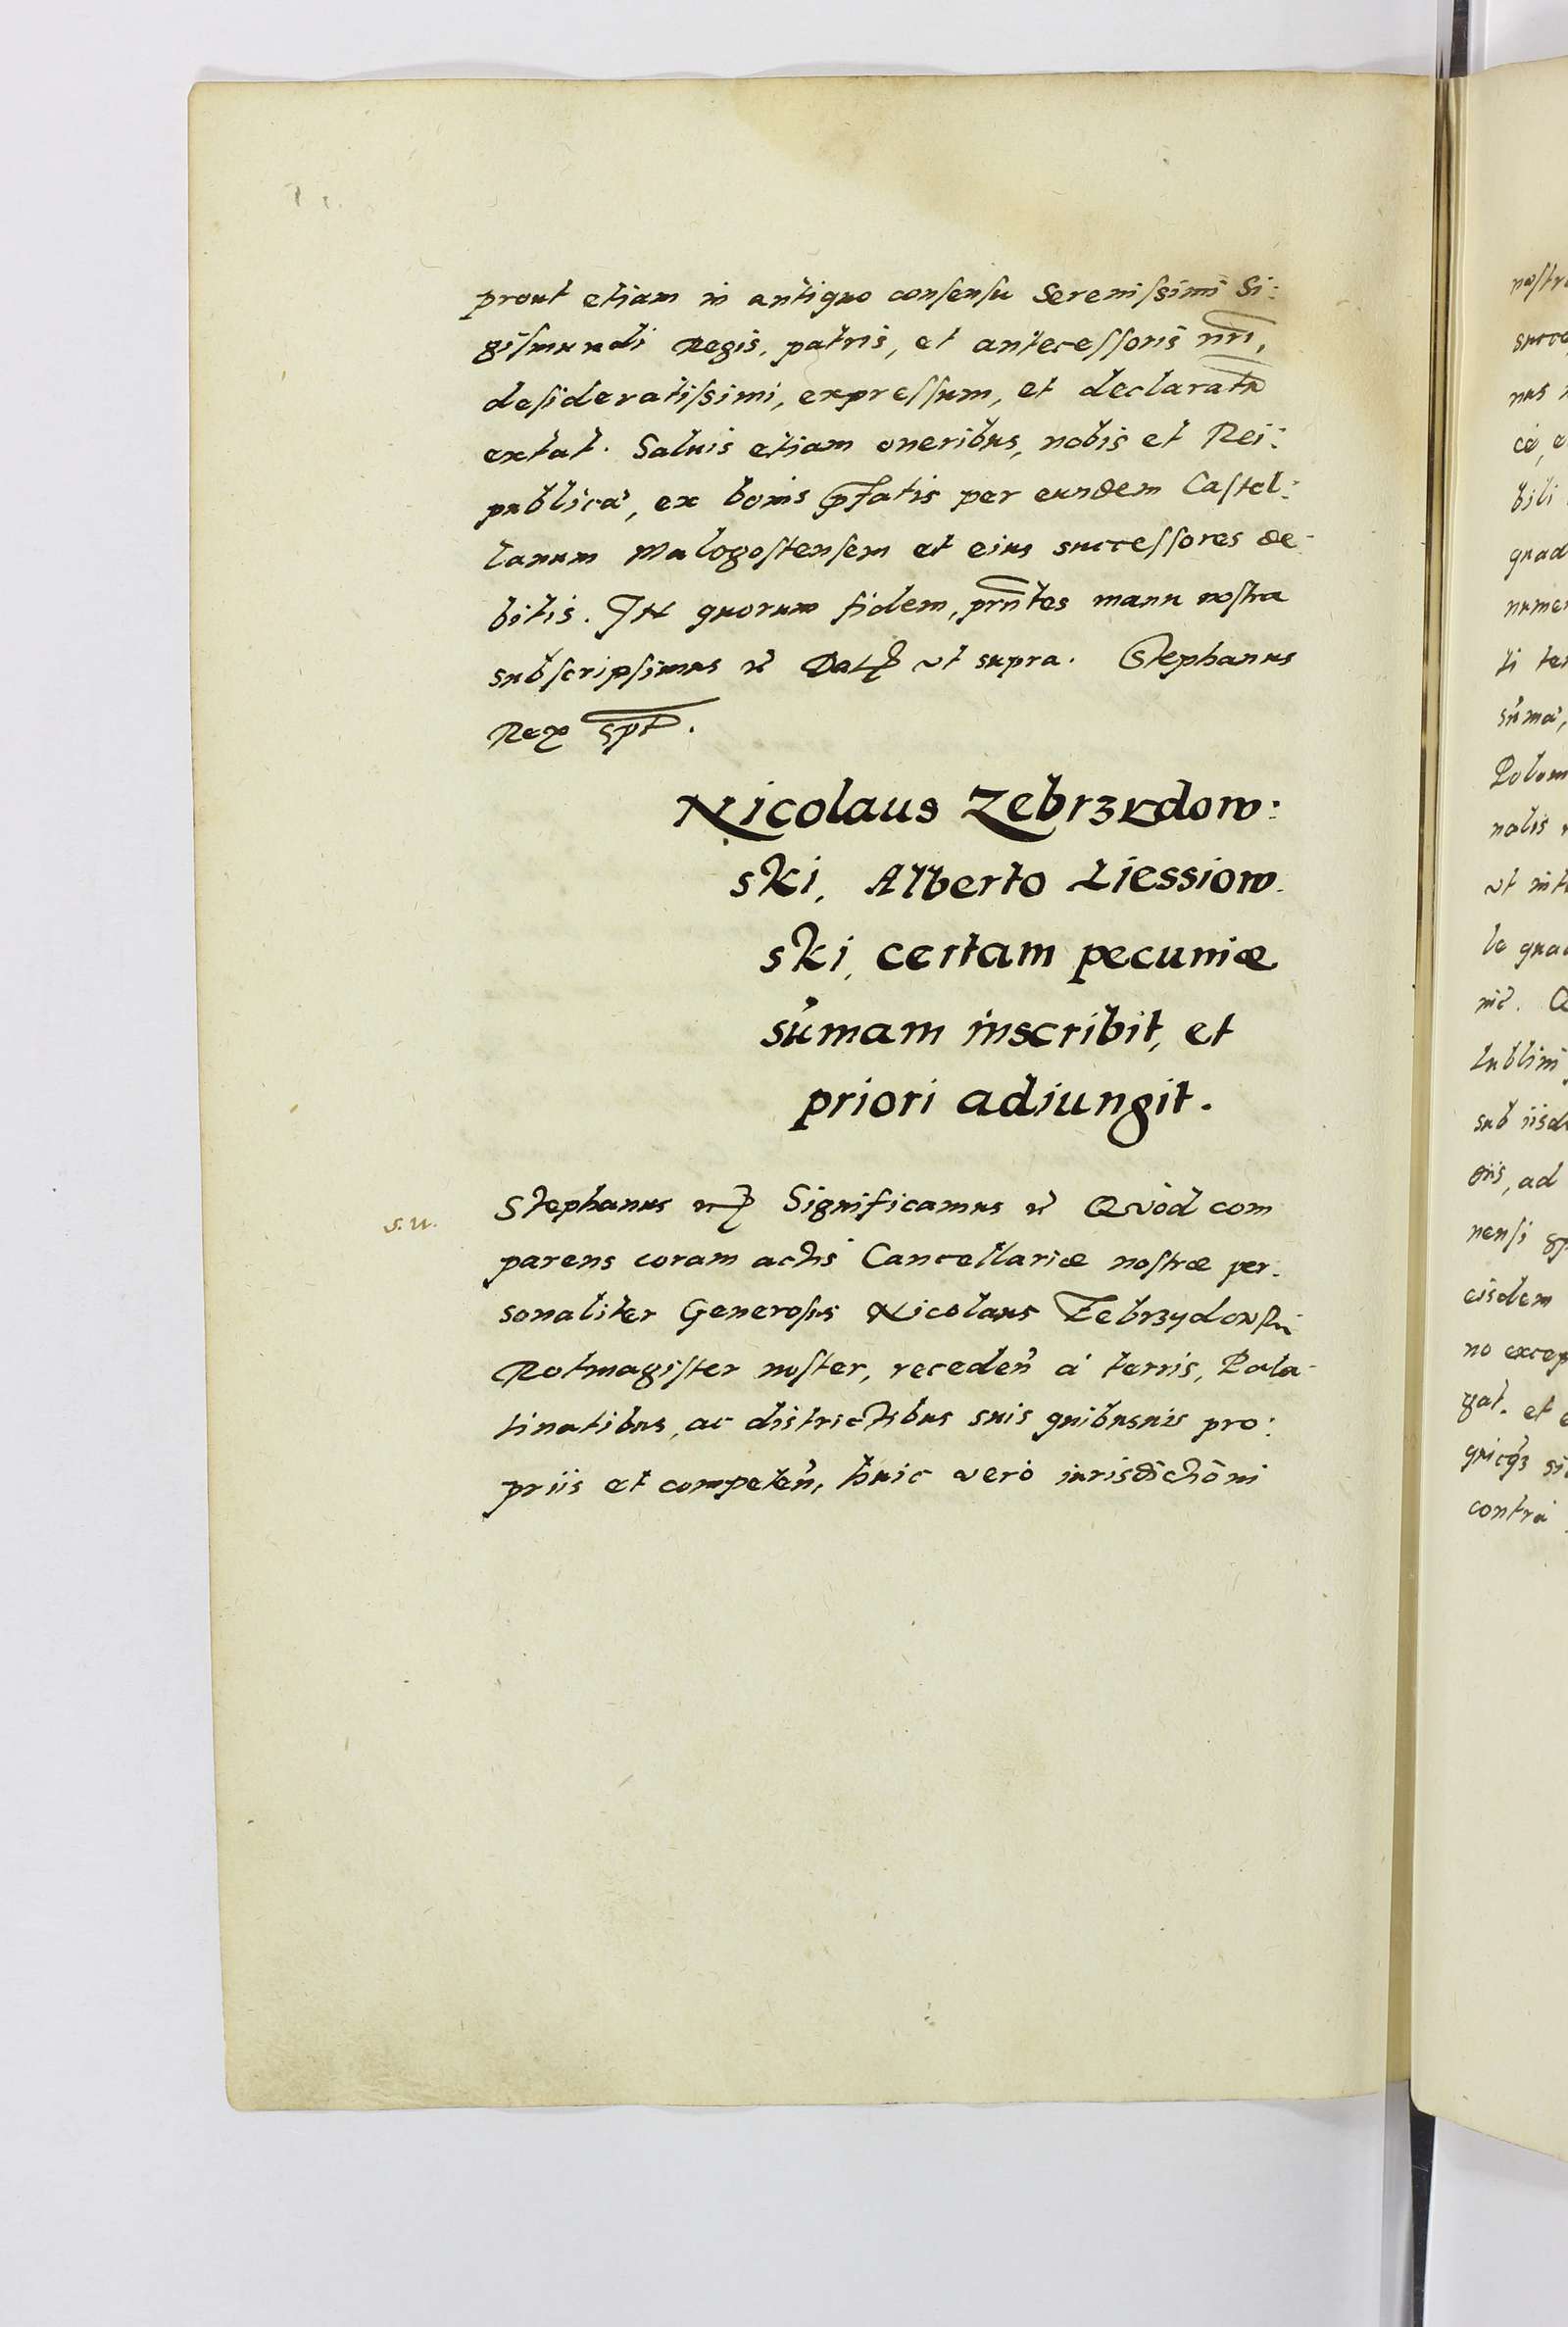 prout etiam in antiquo consensu Serenissimi Si:
gismundi Regis, patris, et antecessoris nri,
desideratissimi, expressum, et declaratu
extat. Saluis etiam oneribus, nobis et Rei:
publicæ, ex bonis pfatis per eundem Castel:
lanum Malogostensem et eius successores de-
bitis. IN quorum fidem, prntes manu nostra
subscripsimus etc Dat ut supra. Stephanus
Rex spt.
Nicolaus Zebrzydow:
ski, Alberto Liessiow.
ski, certam pecuniæ
sumam inscribit, et
priori adiungit.
s.n.
Stephanus etc Significamus etc Quòd com
parens coram actis Cancellariæ nostræ per.
sonaliter Generosus Nicolaus Zebrzydowski
Rotmagister noster, receden à terris, Pala-
tinatibus, ac districtibus suis quibusuis pro:
priis et competen, huic verò iurisdictioni
nostr
succe
nus
bili
quad
numer
ti te
suma,
Polon
nalis
ut int
le qua
Lublini
sub iisd
ad
nensi
eisdem
no excep
gat. et
contra